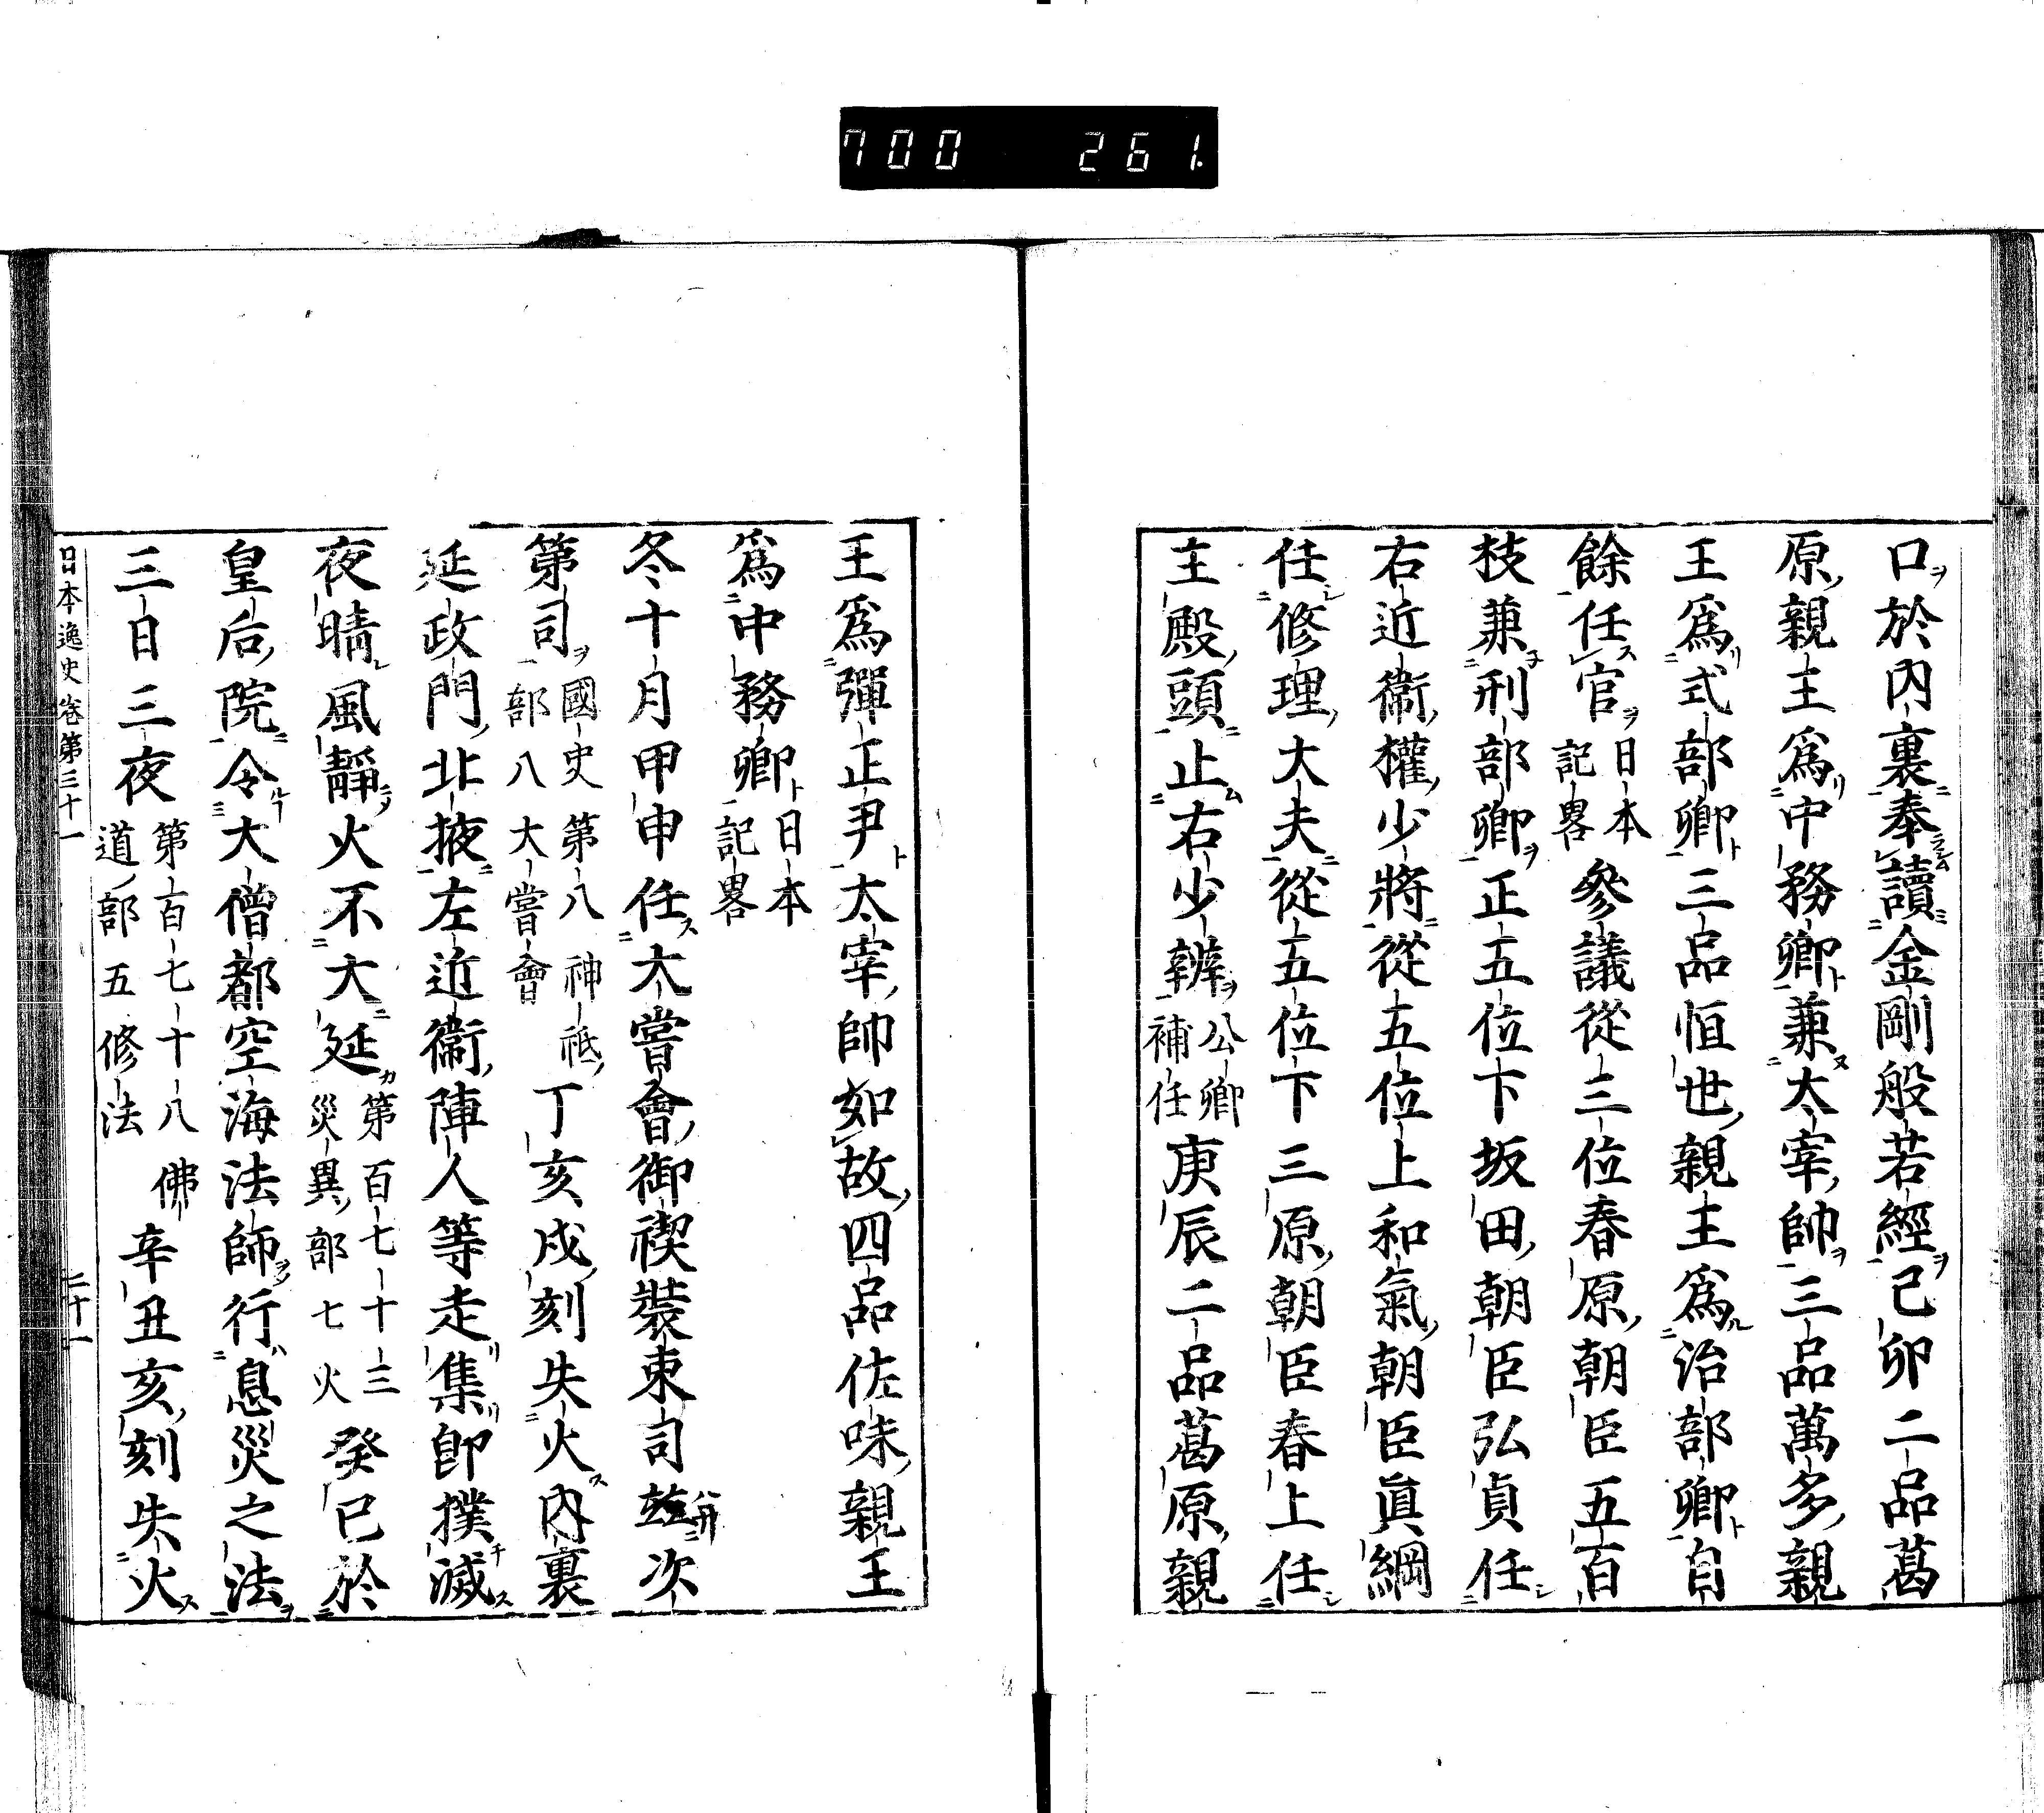 700 261
口於內裏奉讀金剛般若經己卯二品葛
原親王爲中務卿兼太宰帥三品萬多親
王爲式部卿三品恒世親王爲治部卿自
餘任官日本記畧參議從三位春原朝臣五百
枝兼刑部卿正五位下坂田朝臣弘貞任
右近衞權少將從五位上和氣朝臣眞綱
任修理大夫從五位下三原朝臣春上任
主殿頭止右少辨公卿補任庚辰二品葛原親
王爲彈正尹太宰帥如故四品佐味親王
爲中務卿日本記畧
冬十月甲申任大嘗會御禊裝束司竝次
第司國史第八神祇部八大嘗會丁亥戌刻失火內裏
延政門北掖左近衞陣人等走集卽撲滅
夜晴風靜火不大延第百七十三災異部七火癸巳於
皇后院令大僧都空海法師行息災之法
三日三夜第百七十八佛道部五修法辛丑亥刻失火
日本逸史卷第三十一 二十一